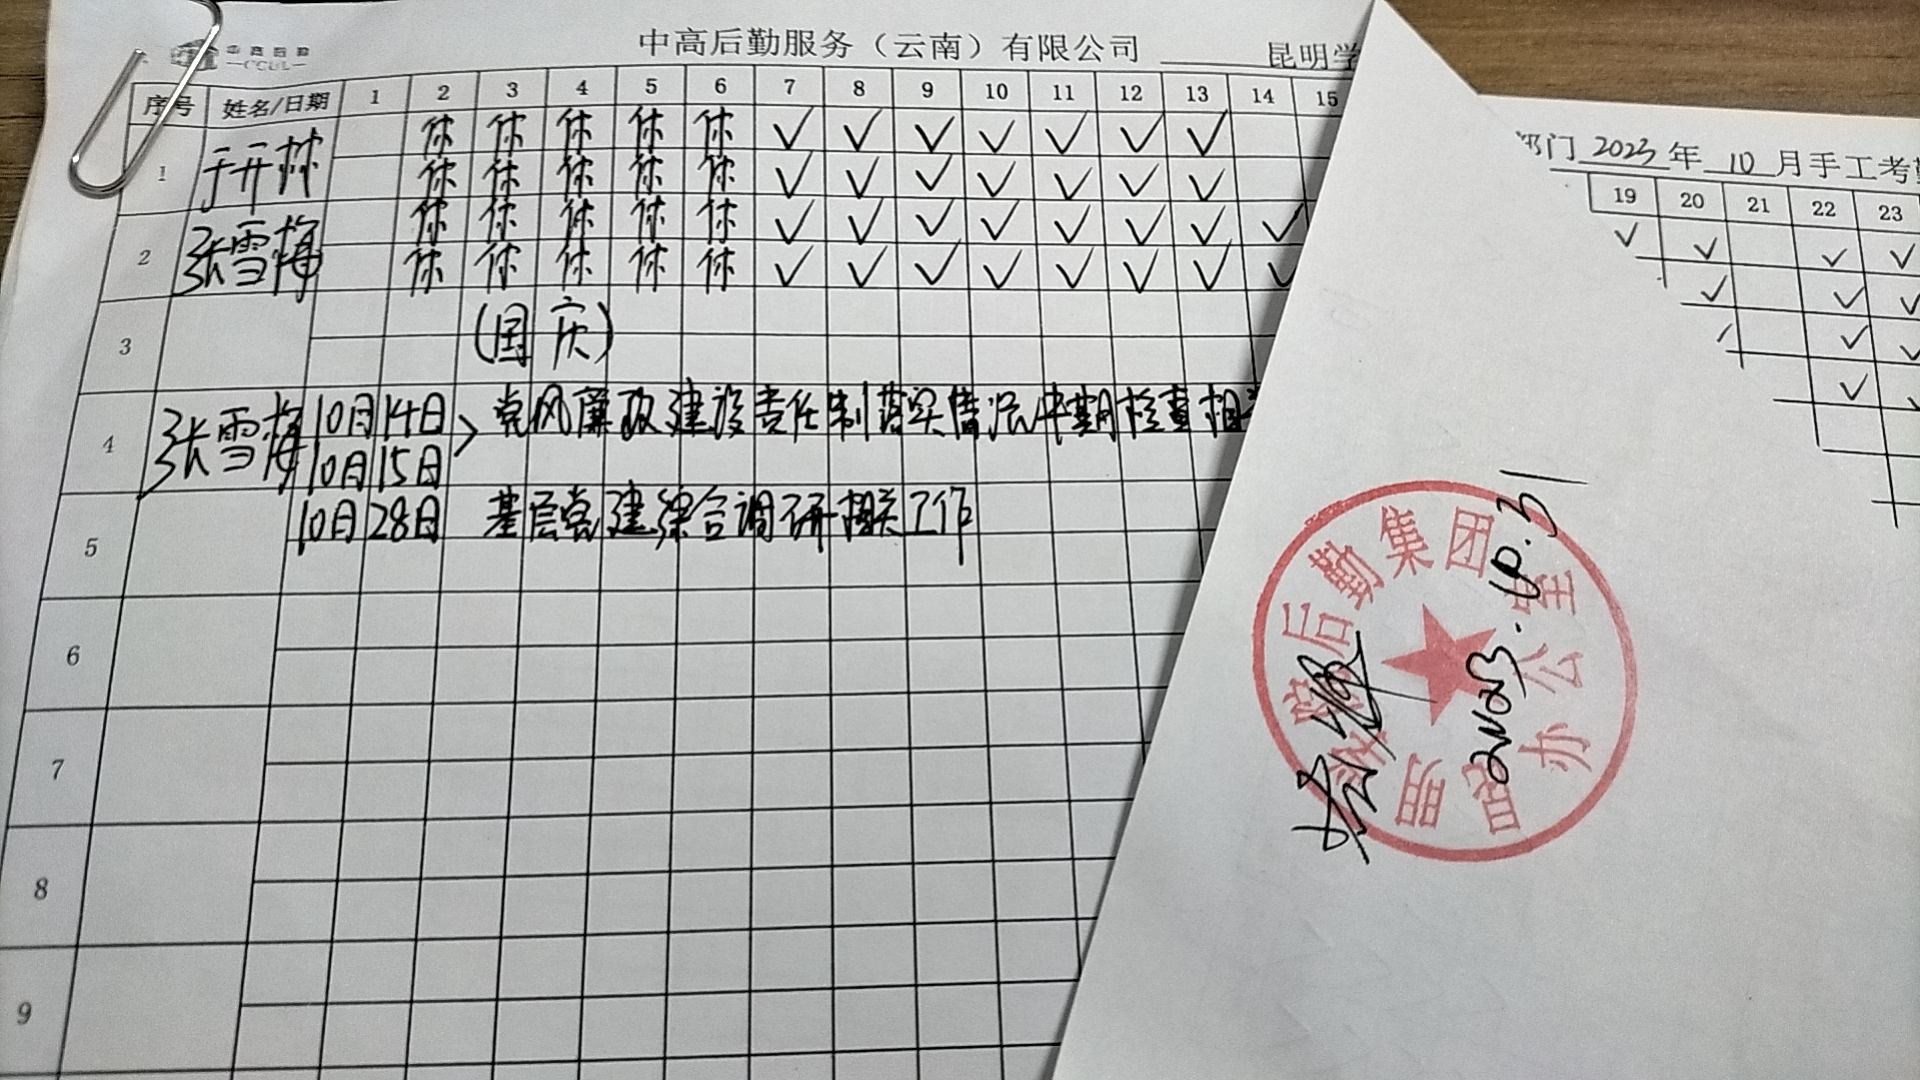 中高后勤
CCUL
中高后勤服务（云南）有限公司 昆明学
部门 2023 年 10 月手工考勤
序号 姓名/日期 1 2 3 4 5 6 7 8 9 10 11 12 13 14 15
19 20 21 22 23
1 于开林 休 休 休 休 休 ✓ ✓ ✓ ✓ ✓ ✓ ✓
休 休 休 休 休 ✓ ✓ ✓ ✓ ✓ ✓ ✓
2 张雪梅 休 休 休 休 休 ✓ ✓ ✓ ✓ ✓ ✓ ✓ ✓
休 休 休 休 休 ✓ ✓ ✓ ✓ ✓ ✓ ✓ ✓
3 (国庆)
4 张雪梅 10月14日 党风廉政建设责任制落实情况中期检查相关
10月15日
5 10月28日 基层党建综合调研相关工作
6
7
8
9
昆明学院后勤集团办公室
2023.10.31